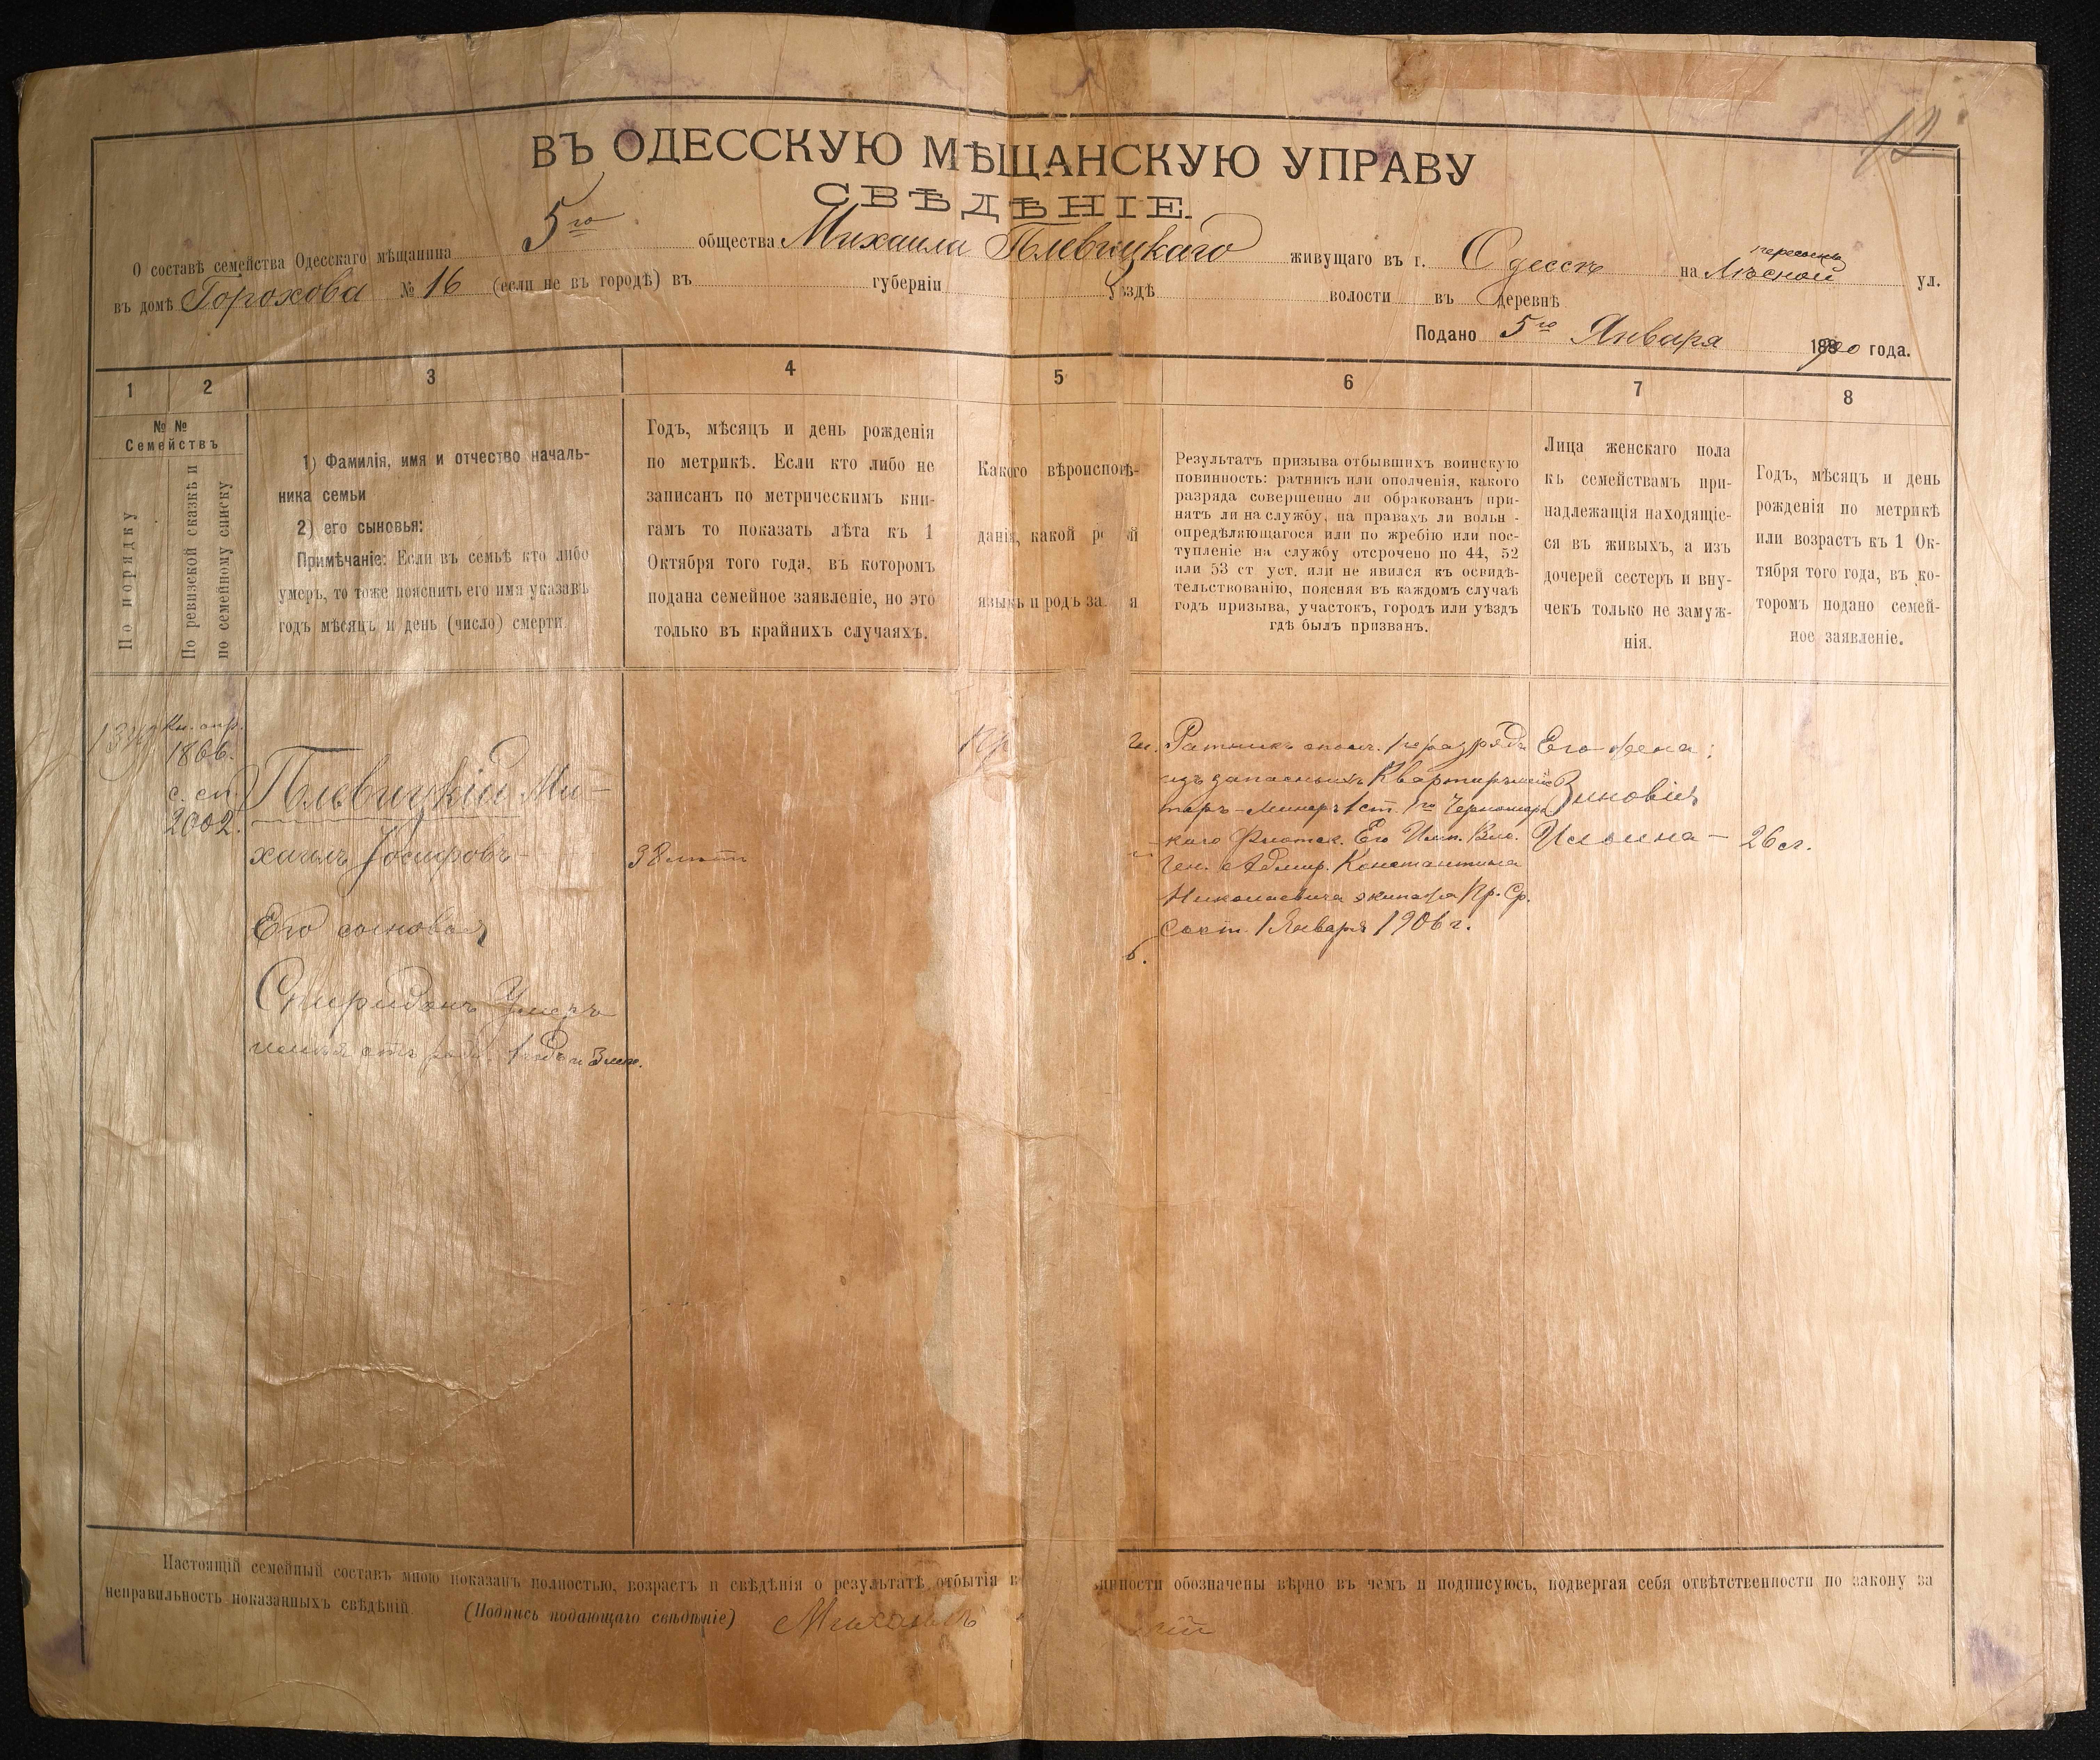 13
ВЪ ОДЕССКУЮ МѢЩАНСКУЮ УПРАВУ
СВѢДѢНІЕ.
О составѣ семейства Одесскаго мѣщанина 5го общества Михаила Плевицкаго живущаго въ г. Одессѣ на Лѣсной ул.
въ домѣ Горохова № 16 (если не въ городѣ) въ губерніи уѣздѣ волости въ деревнѣ
Подано 5го Января года.
1 2 3 4 5 6 7 8
№ №
Семействъ
По порядку
По ревизской сказкѣ и
по семейному списку
1) Фамилія, имя и отчество началь-
ника семьи
2) его сыновья:
Примѣчаніе: Если въ семьѣ кто либо
умеръ, то тоже пояснить его имя указавъ
годъ мѣсяцъ и день (число) смерти.
Годъ, мѣсяцъ и день рожденія
по метрикѣ. Если кто либо не
записанъ по метрическимъ кни-
гамъ то показать лѣта къ 1
Октября того года, въ которомъ
подана семейное заявленіе, но это
только въ крайнихъ случаяхъ.
Какого вѣроисповѣ-
данія, какой
языкъ и родъ
Результатъ призыва отбывшихъ воинскую
повинность: ратникъ или ополченія, какого
разряда совершенно ли обракованъ при-
нятъ ли на службу, на правахъ ли вольн -
опредѣляющагося или по жребію или пос-
тупленіе на службу отсрочено по 44, 52
или 53 ст уст. или не явился къ освидѣ-
тельствованію, поясняя въ каждомъ случаѣ
годъ призыва, участокъ, городъ или уѣздъ
гдѣ былъ призванъ.
Лица женскаго пола
къ семействамъ при-
надлежащія находящіе-
ся въ живыхъ, а изъ
дочерей сестеръ и вну-
чекъ только не замуж-
нія.
Годъ, мѣсяцъ и день
рожденія по метрикѣ
или возрастъ къ 1 Ок-
тября того года, въ ко-
торомъ подано семей-
ное заявленіе.
1866.
с. сп.
2002.
Плевицкій Ми-
хаилъ Іосифовъ
Его сыновья
Спиридонъ Умеръ
38 лѣтъ
Ратникъ ополч. 1го разряда
изъ запасныхъ Квартирмейс
теръ-Минеръ 1 ст. 1го Черномор
каго Флотск. Его Имп. Выс.
Ген. Адмир. Константина
Николаевича экипажа Пр. Ср.
Сост. 1 Января 1906 г.
Его жена:
Зиновія
Ильина - 26 л.
Настоящій семейный составъ мною показанъ полностью, возрастъ и свѣдѣнія о результатѣ отбытія обозначены вѣрно въ чемъ и подписуюсь, подвергая себя отвѣтственности по закону за
неправильность показанныхъ свѣдѣній. (Подпись подающаго свѣдѣніе) Михаилъ